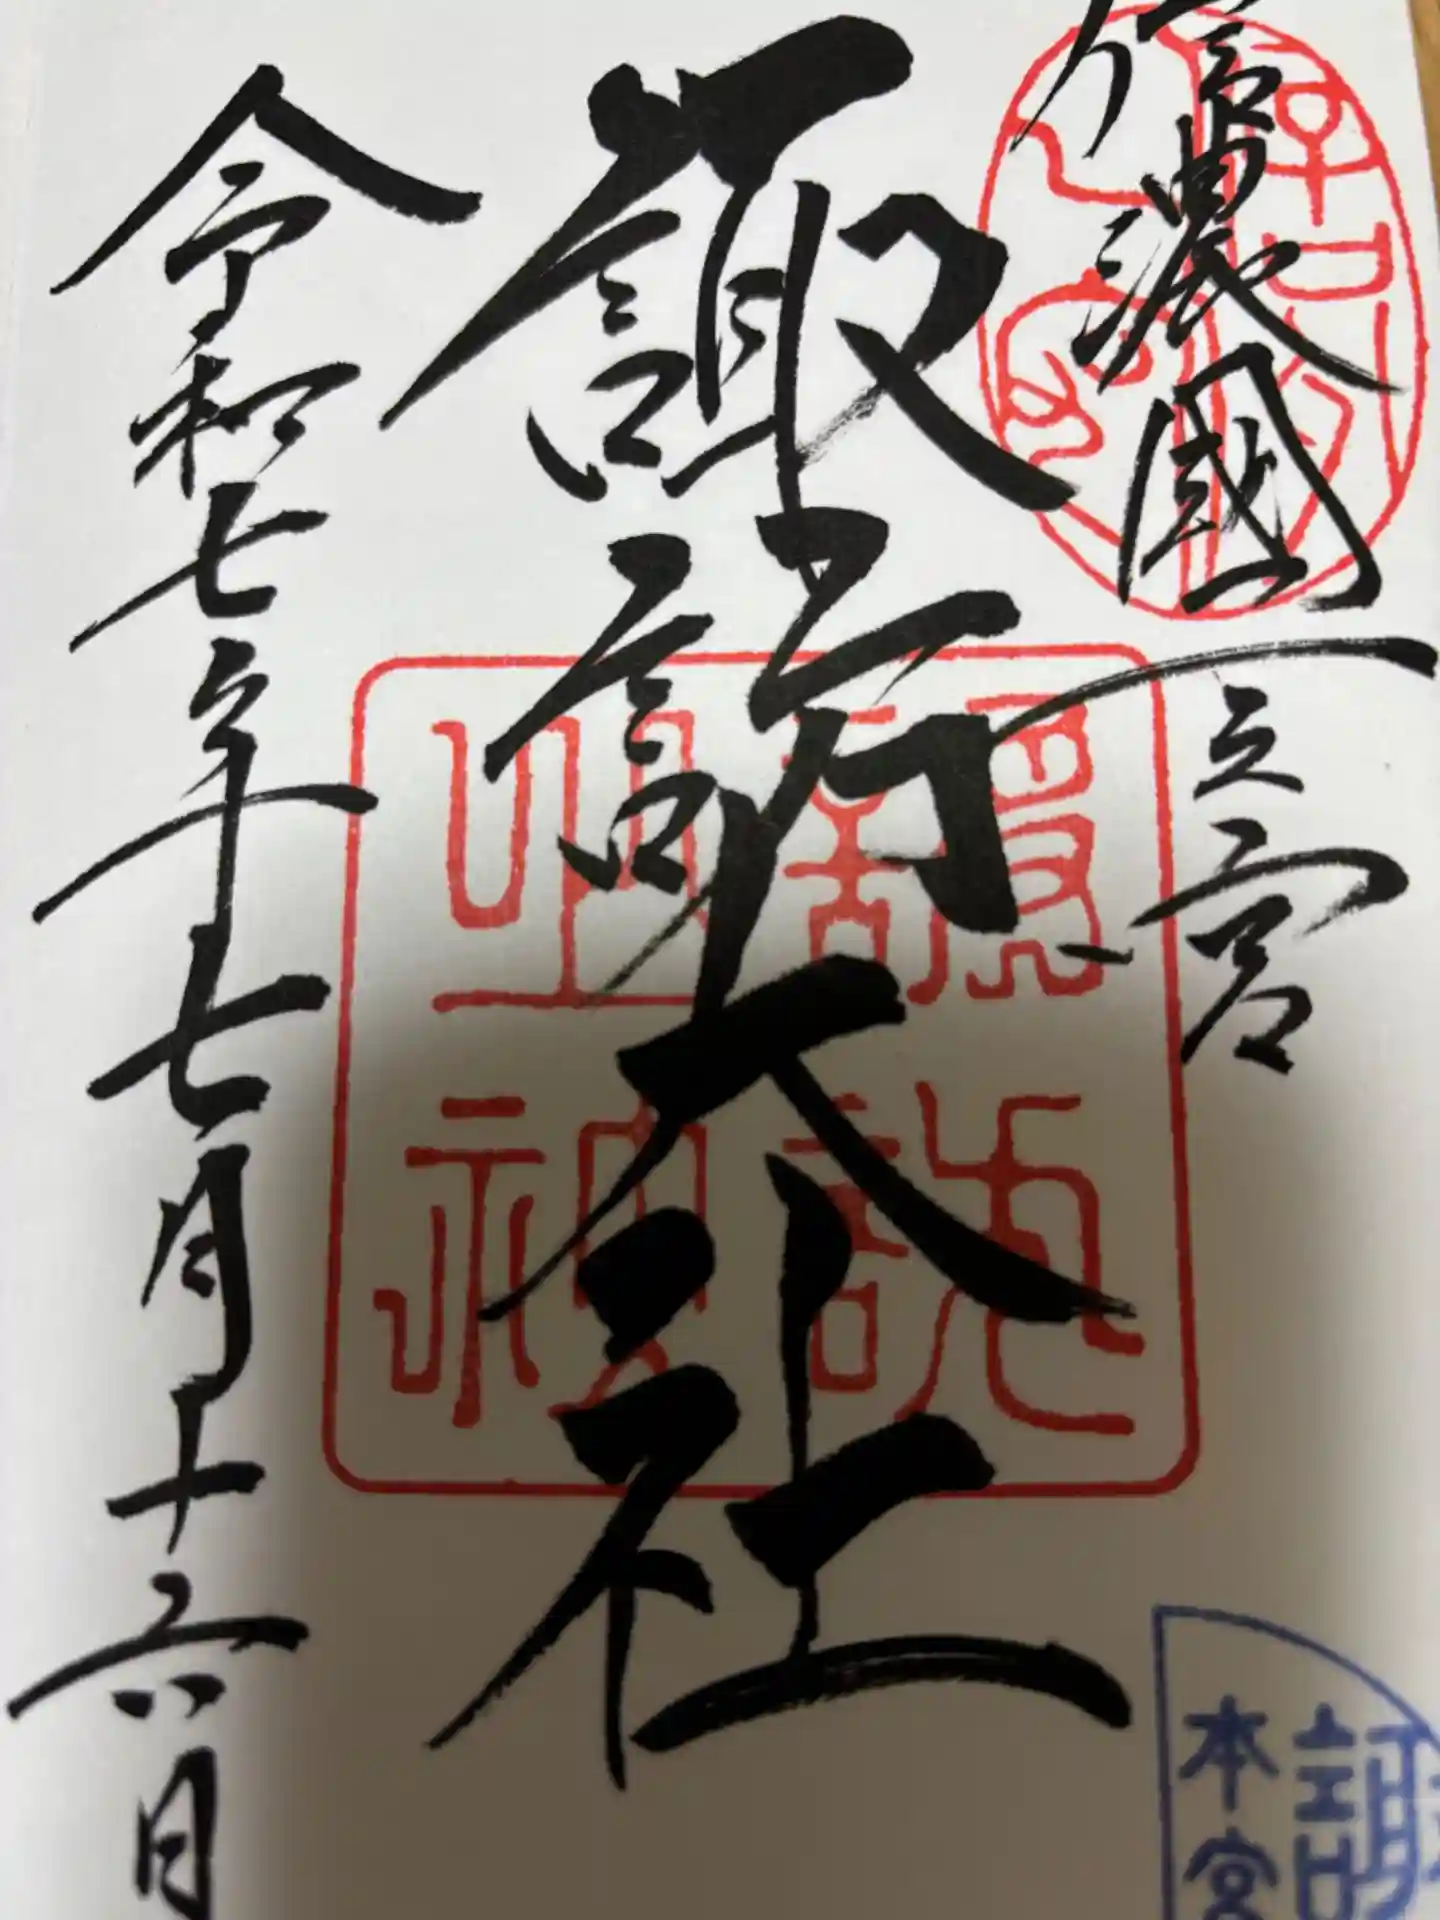 信濃國一之宮
諏訪大社
令和七年七月十六日
諏
本宮